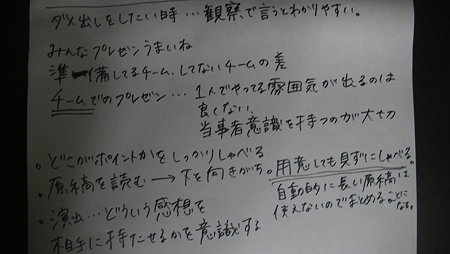 ダメ出しをしたい時…観察、で言うとわかりやすい。
みんなプレゼンうまいね
準備してるチーム、してないチームの差
チームでのプレゼン…1人でやってる雰囲気が出るのは
良くない。
当事者意識を持つのが大切
。どこがポイントかをしっかりしゃべる
。原稿を読む→下を向きがち。用意しても見ずにしゃべる。
自動的に長い原稿は
使えないのでまとめることになる。
。演出…どういう感想を
相手に持たせるかを意識する